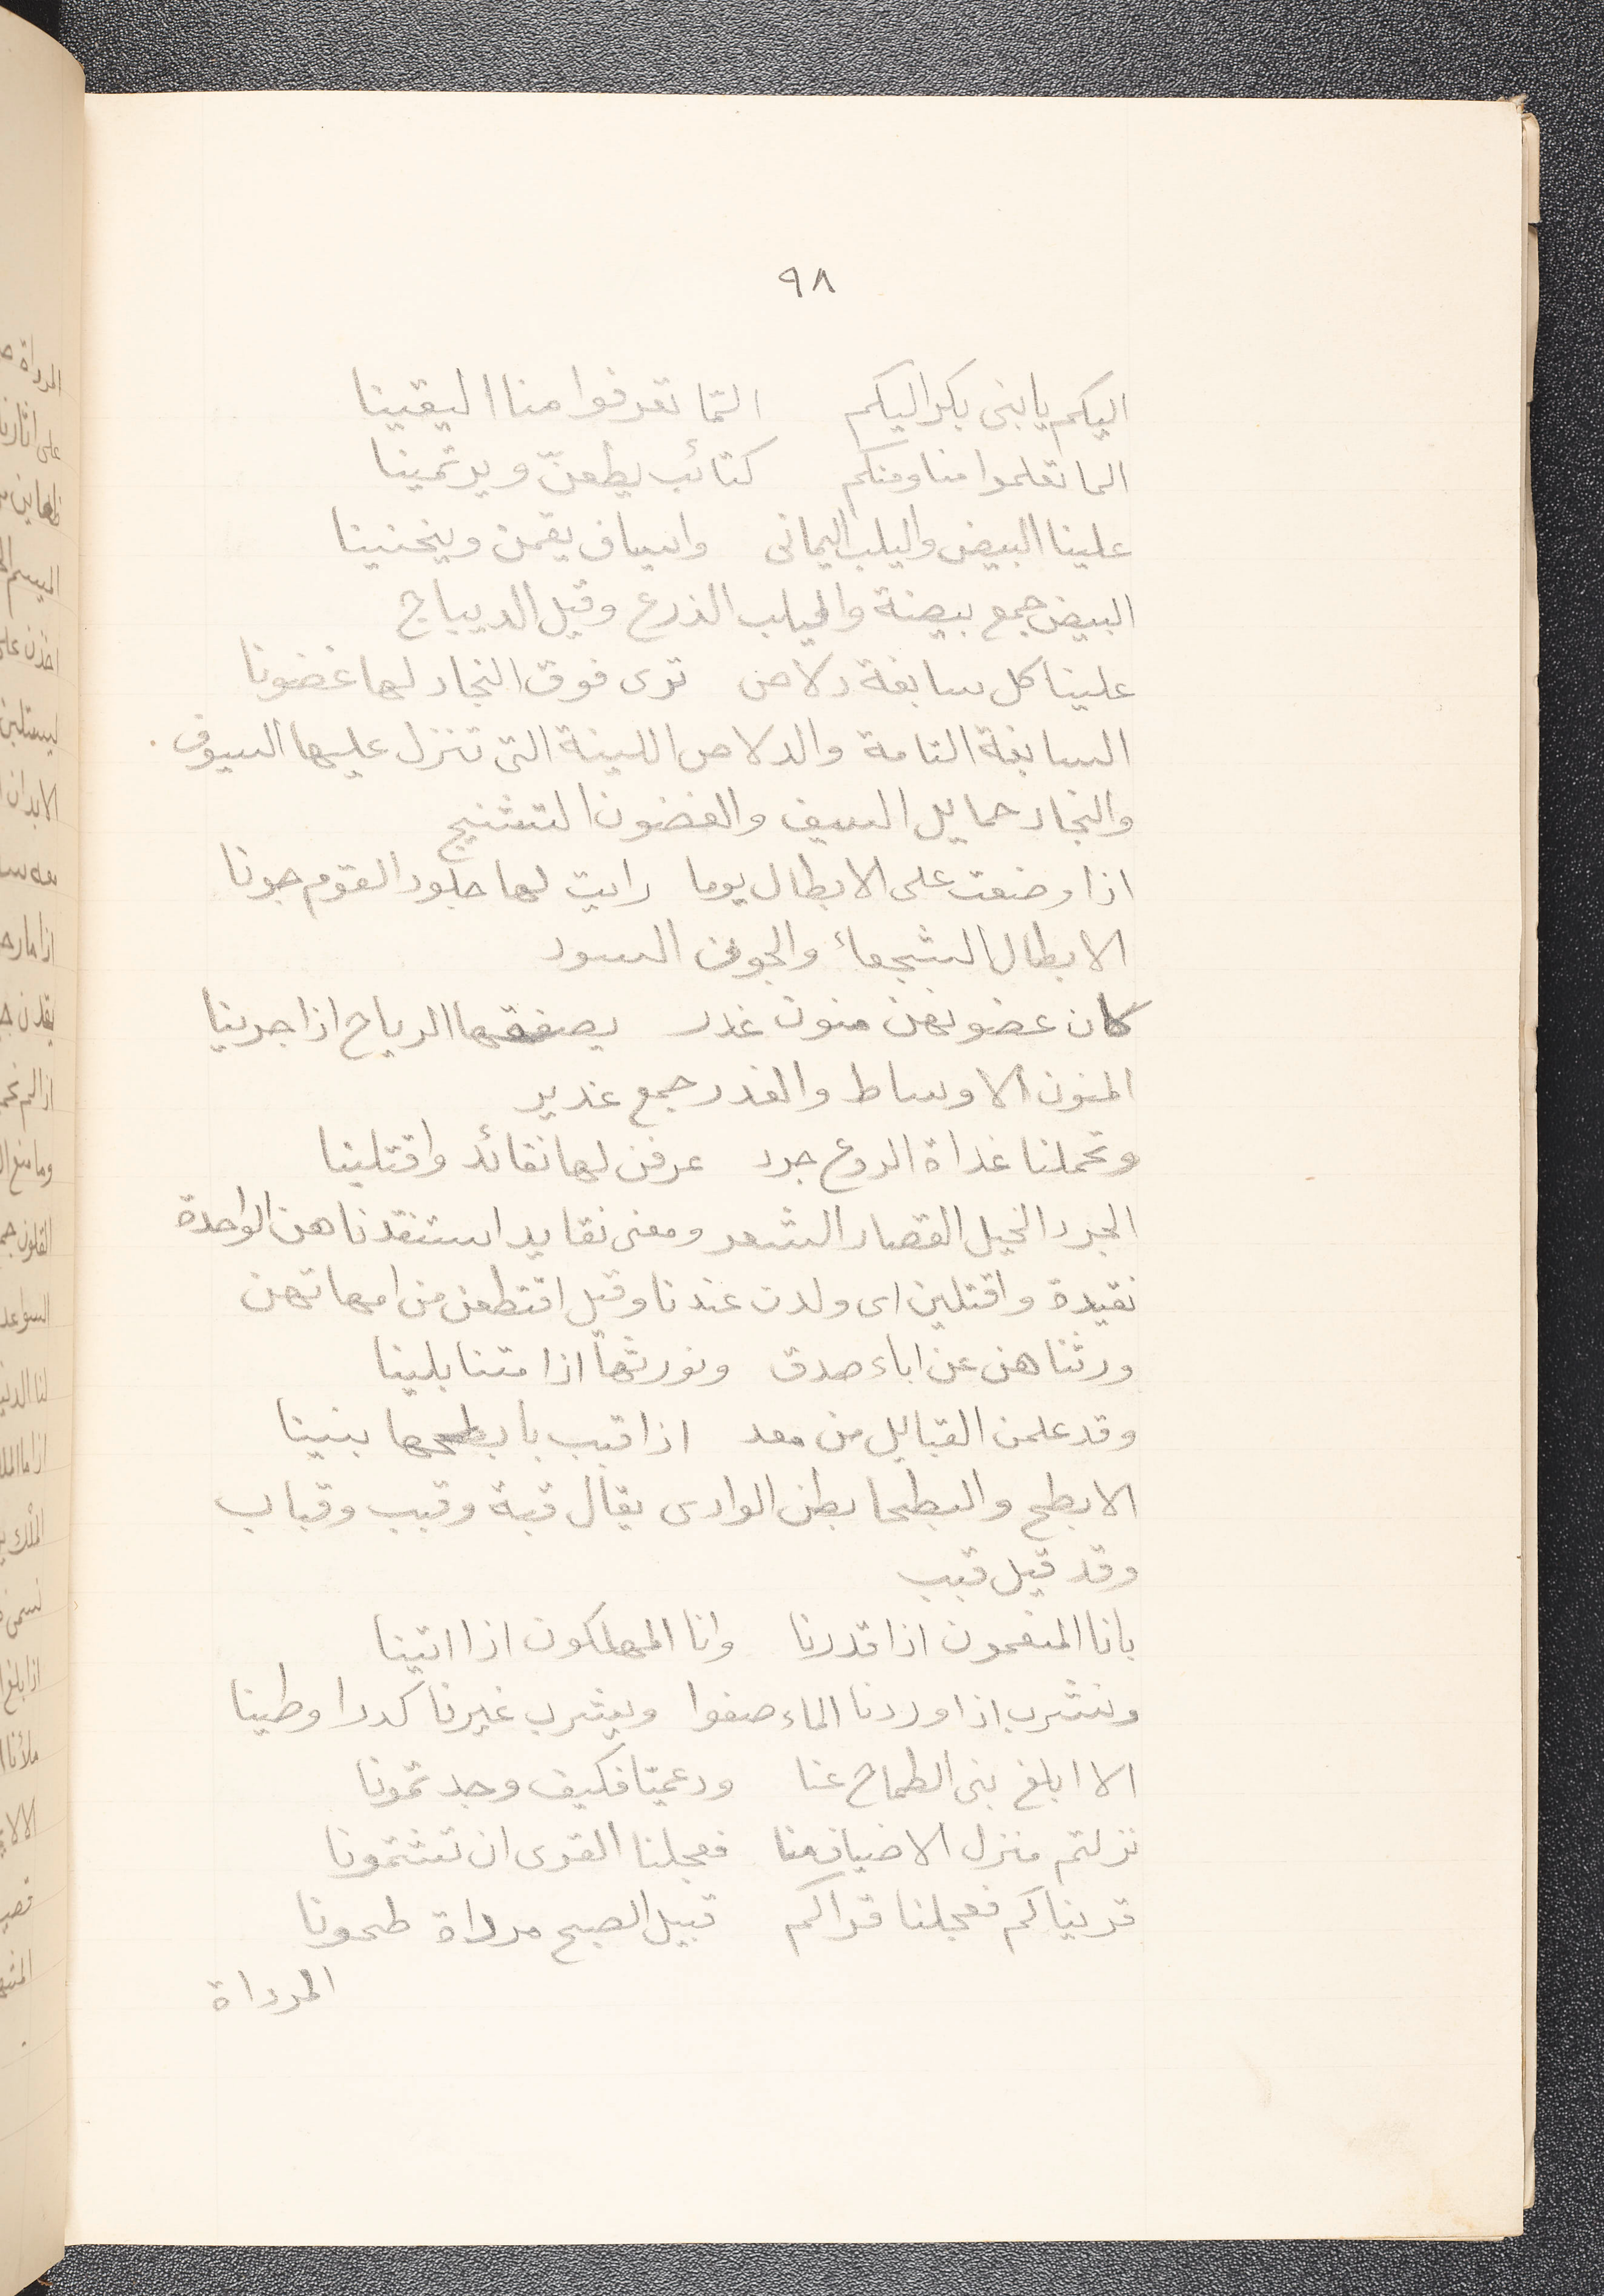 ٩٨
اليكم يا بنى بكر اليكم المّا تعرفوا منا اليقينا
الما تعلموا منا ومنكم كتائب يطعنّ ويرتمينا
علينا البيض واليلب اليمانى واسياف يقمن وينحنينا
البيض جمع بيضة واليلب الذرع وقيل الديباج
علينا كل سابغة دلاص ترى فوق النجاد لها غضونا
السابغة التامة والدلاص اللينة التى تنزل عليها السيوف
والنجاد حمايل السيف والغضون التشنيج
اذا وضعت على الابطال يوما رايت لها جلود القوم جونا
الابطال الشجعاء والجون السود
كان غضونهن متون غدر يصفقها الرياح اذا جرينا
المتون الاوساط والغدر جمع غدير
وتحملنا غداة الروع جرد عرفن لها نقائد وافتلينا
الجرد الخيل القصار الشعر ومعنى نقايد استنقدناهن الواحدة
نقيدة وافتلين اى ولدن عندنا وقيل اقتطعن من امهاتهن
ورثناهن عن اباء صدق ونورثها اذا متنا بلينا
وقد علمن القبايل من معد اذا قبب بابطحها بنينا
الابطح والبطحا بطن الوادى يقال قبة وقبب وقباب
وقد قيل قبب
بانا المنعمون اذا قدرنا وانا المهلكون اذا اتينا
ونشرب اذا وردنا الماء صفوا ويشرب غيرنا كدرا وطينا
الا ابلغ بنى الطماح عنا ودعميّا فكيف وجدتمونا
نزلتم منزل الاضياف منا فعجلنا القرى ان تشتمونا
قريناكم فعجلنا قراكم قبيل الصبح مرداة طحونا
المرداة